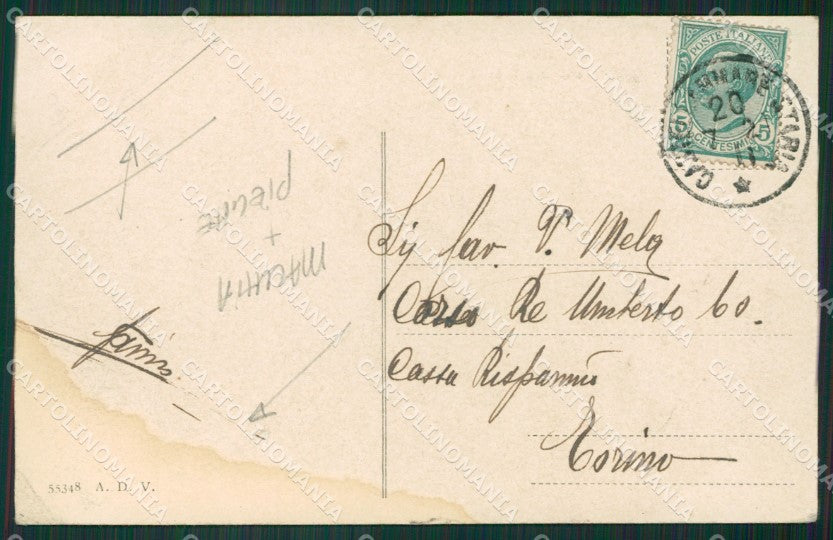 POSTE ITALIANE
5 5
CENTESIMI
20
PIEGHE
+
MACCHIA
Sig Cav. P. Mela
Corso Re Umberto 60.
Cassa Risparmio
Torino
55348 A. D. V.
CARTOLINOMANIA